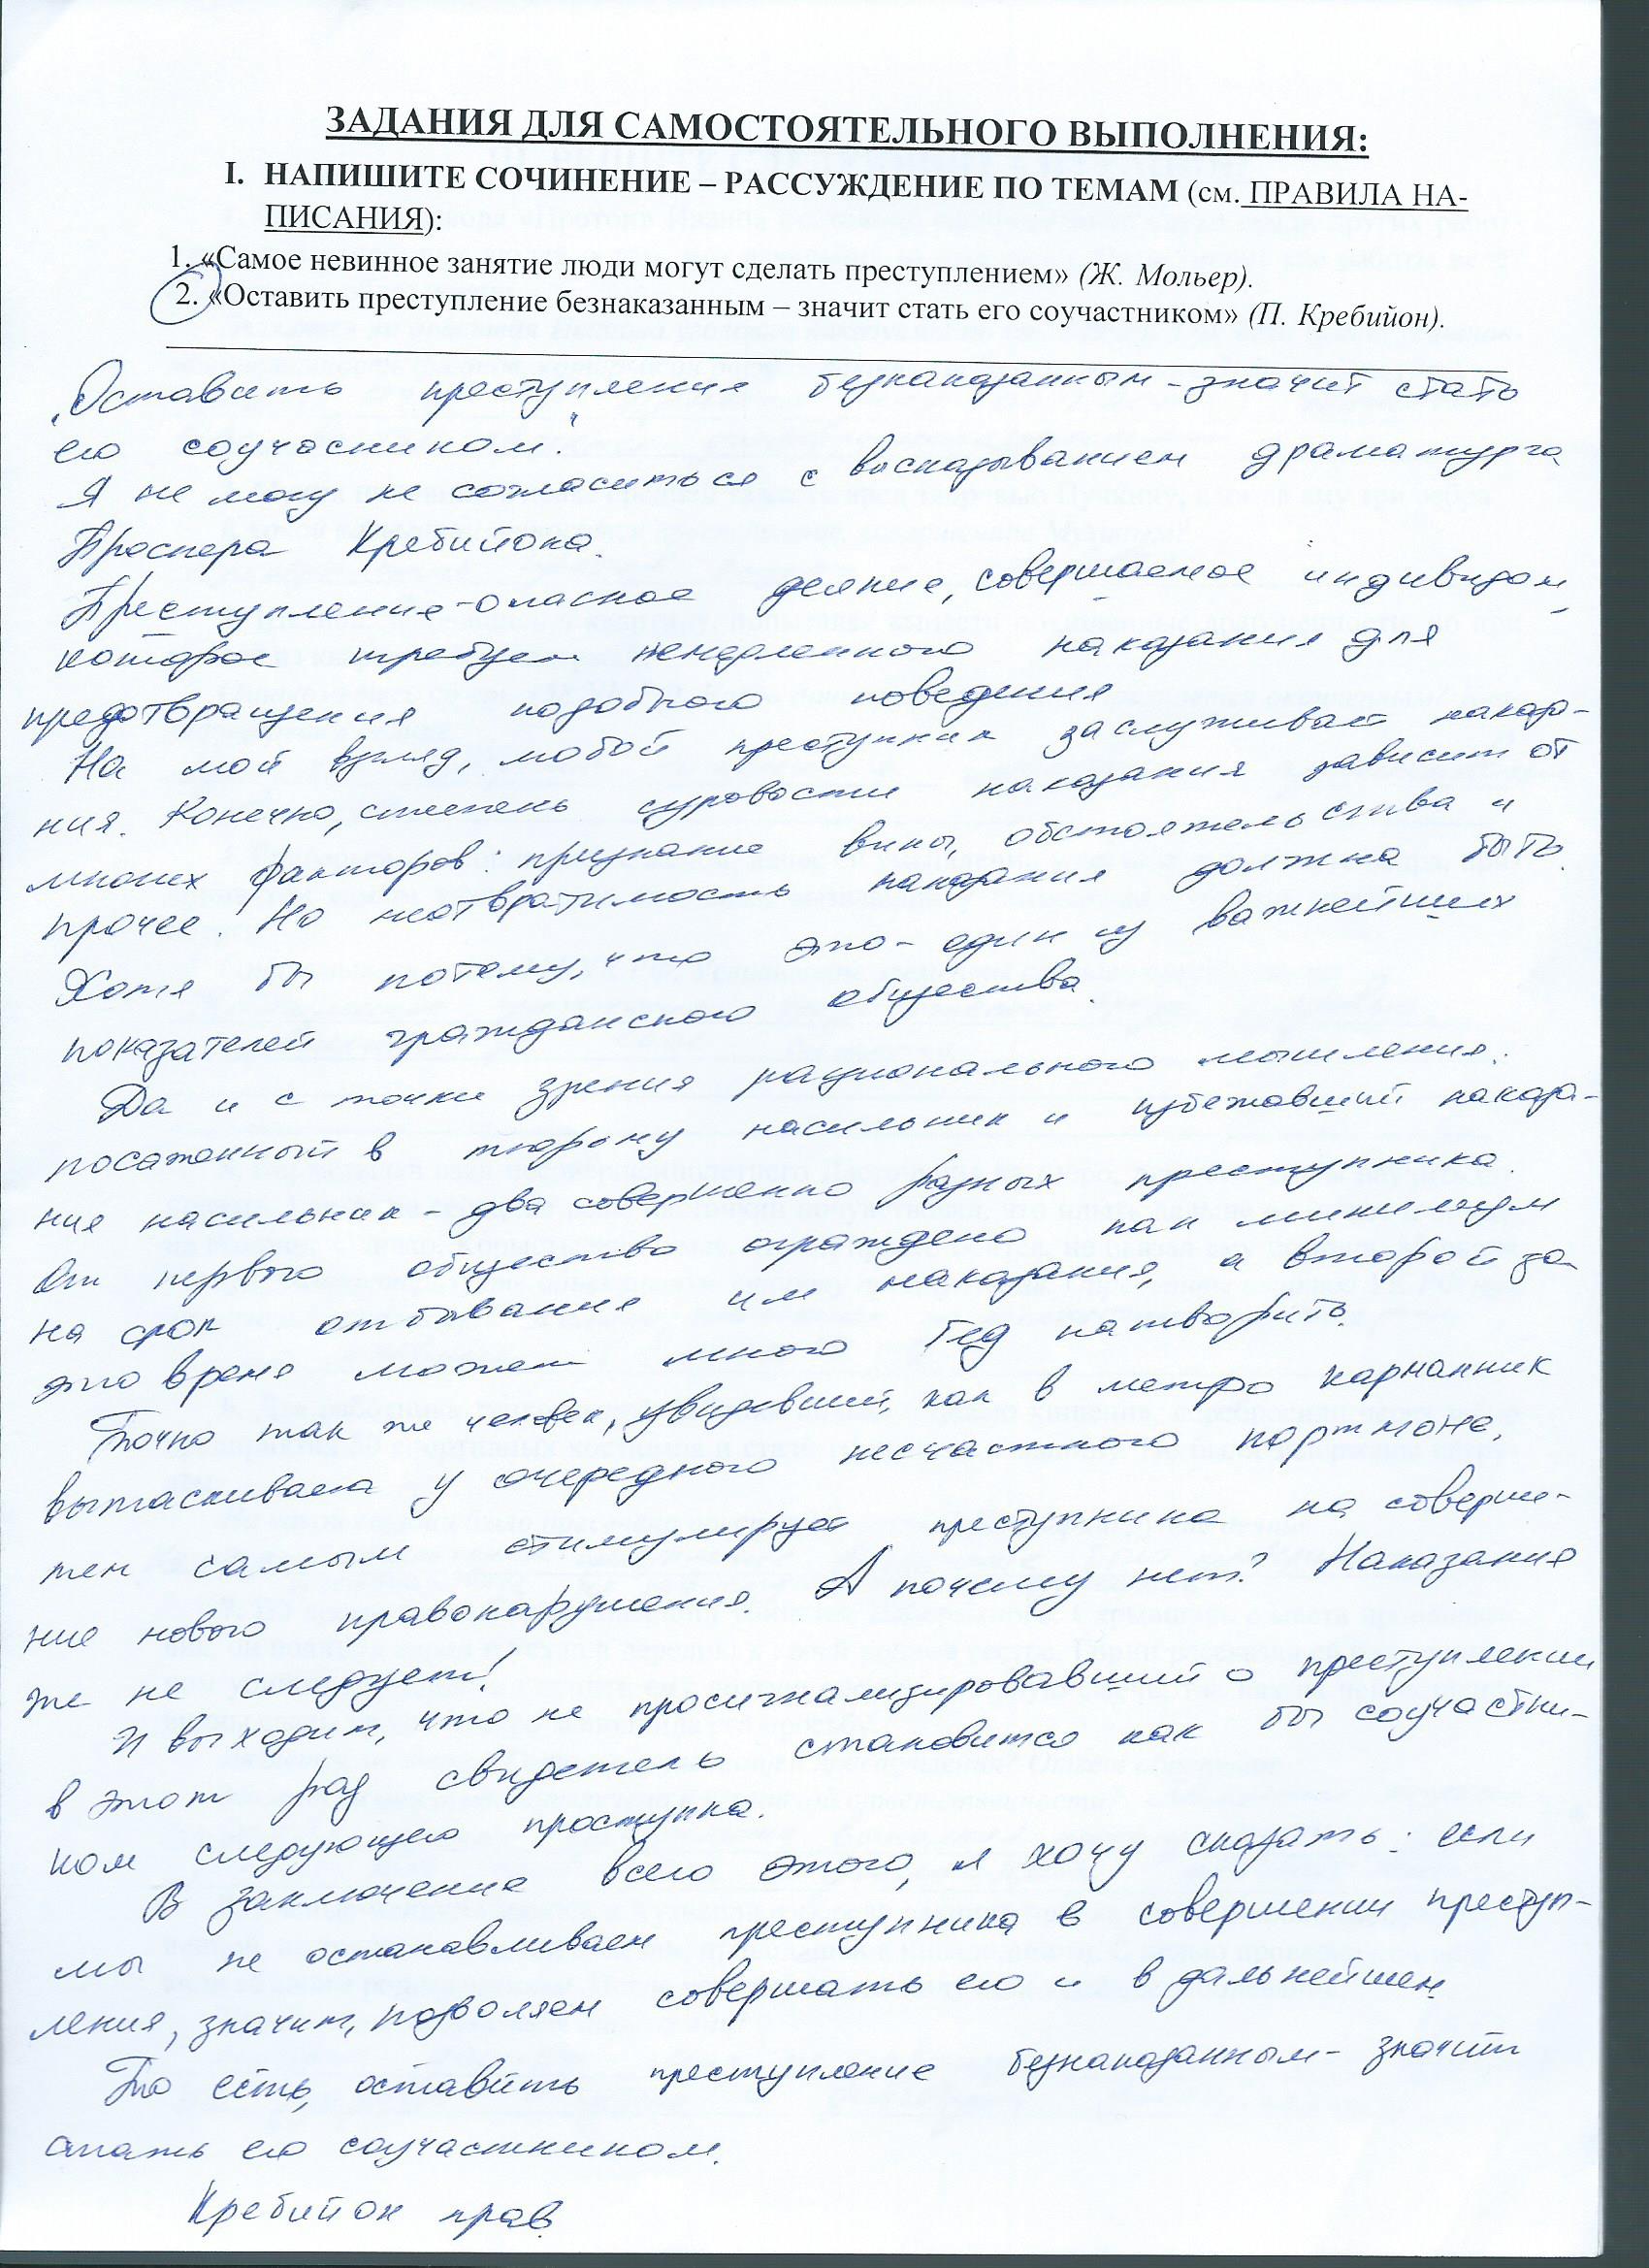 ЗАДАНИЯ ДЛЯ САМОСТОЯТЕЛЬНОГО ВЫПОЛНЕНИЯ:
I. НАПИШИТЕ СОЧИНЕНИЕ – РАССУЖДЕНИЕ ПО ТЕМАМ (см. ПРАВИЛА НА-
ПИСАНИЯ):
1. «Самое невинное занятие люди могут сделать преступлением» (Ж. Мольер).
2. «Оставить преступление безнаказанным – значит стать его соучастником» (П. Кребийон).
„Оставить преступление безнаказанным - значит стать
его соучасником."
Я не могу не согласиться с высказыванием драматурга
Проспера Кребийона.
Преступление - опасное деяние, совершаемое индивидом,
которое требует немедленного наказания для
предотвращения подобного поведения
На мой взгляд, любой преступник заслуживает наказа-
ния. Конечно, степень суровости наказания зависит от
многих факторов: признание вины, обстоятельства и
прочее. Но неотвратимость наказания должна быть.
Хотя бы потому, что это - один из важнейших
показателей гражданского общества.
Да и с точки зрения рационального мышления:
посаженный в тюрьму насильник и избежавший наказа-
ния насильник - два совершенно разных преступника.
От первого общество ограждено как минимум
на срок отбывания им наказания, а второй за
это время может много бед натворить.
Точно так же человек, увидевший, как в метро карманник
вытаскивает у очередного несчастного портмоне,
тем самым стимулирует преступника на соверше-
ние нового правонарушения. А почему нет? Наказания
же не следует!
И выходит, что не просигнализировавший о преступлении
в этот раз свидетель становится как бы соучастни-
ком следующего проступка.
В заключение всего этого, я хочу сказать: если
мы не останавливаем преступника в совершении преступ-
ления, значит, позволяем совершать его и в дальнейшем.
То есть, оставить преступление безнаказанным - значит
стать его соучастником.
Кребийон прав.